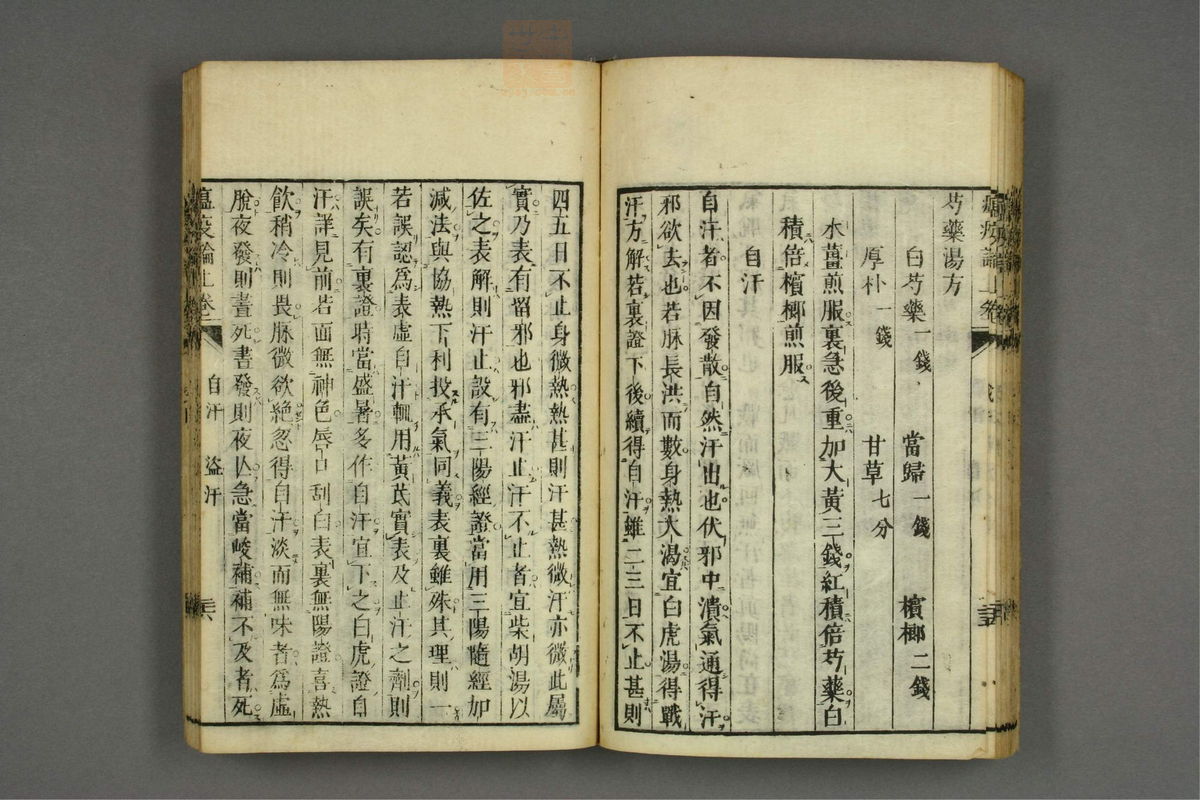 芍藥湯方
白芍藥一錢 當歸一錢 檳榔二錢
厚朴一錢 甘草七分
水薑煎服裏急後重加大黃三錢紅積倍芍藥白
積倍檳榔煎服
自汗
自汗者不因發散自然汗出也伏邪中潰氣通得汗
邪欲去也若脉長洪而數身熱大渴宜白虎湯得戰
汗方解若裏證下後續得自汗雖二三日不止甚則
四五日不止身微熱熱甚則汗甚熱微汗亦微此屬
實乃表有留邪也邪盡汗止汗不止者宜柴胡湯以
佐之表解則汗止設有三陽經證當用三陽隨經加
減法與協熱下利投承氣同義表裏雖殊其理則一
若誤認爲表虛自汗輒用黃芪實表及止汗之劑則
誤矣有裏證時當盛暑多作自汗宜下之白虎證自
汗詳見前若面無神色唇口刮白表裏無陽證喜熱
飲稍冷則畏脉微欲絶忽得自汗淡而無味者爲虛
脫夜發則晝死晝發則夜亾急當峻補補不及者死
瘟疫論上卷 自汗 盜汗